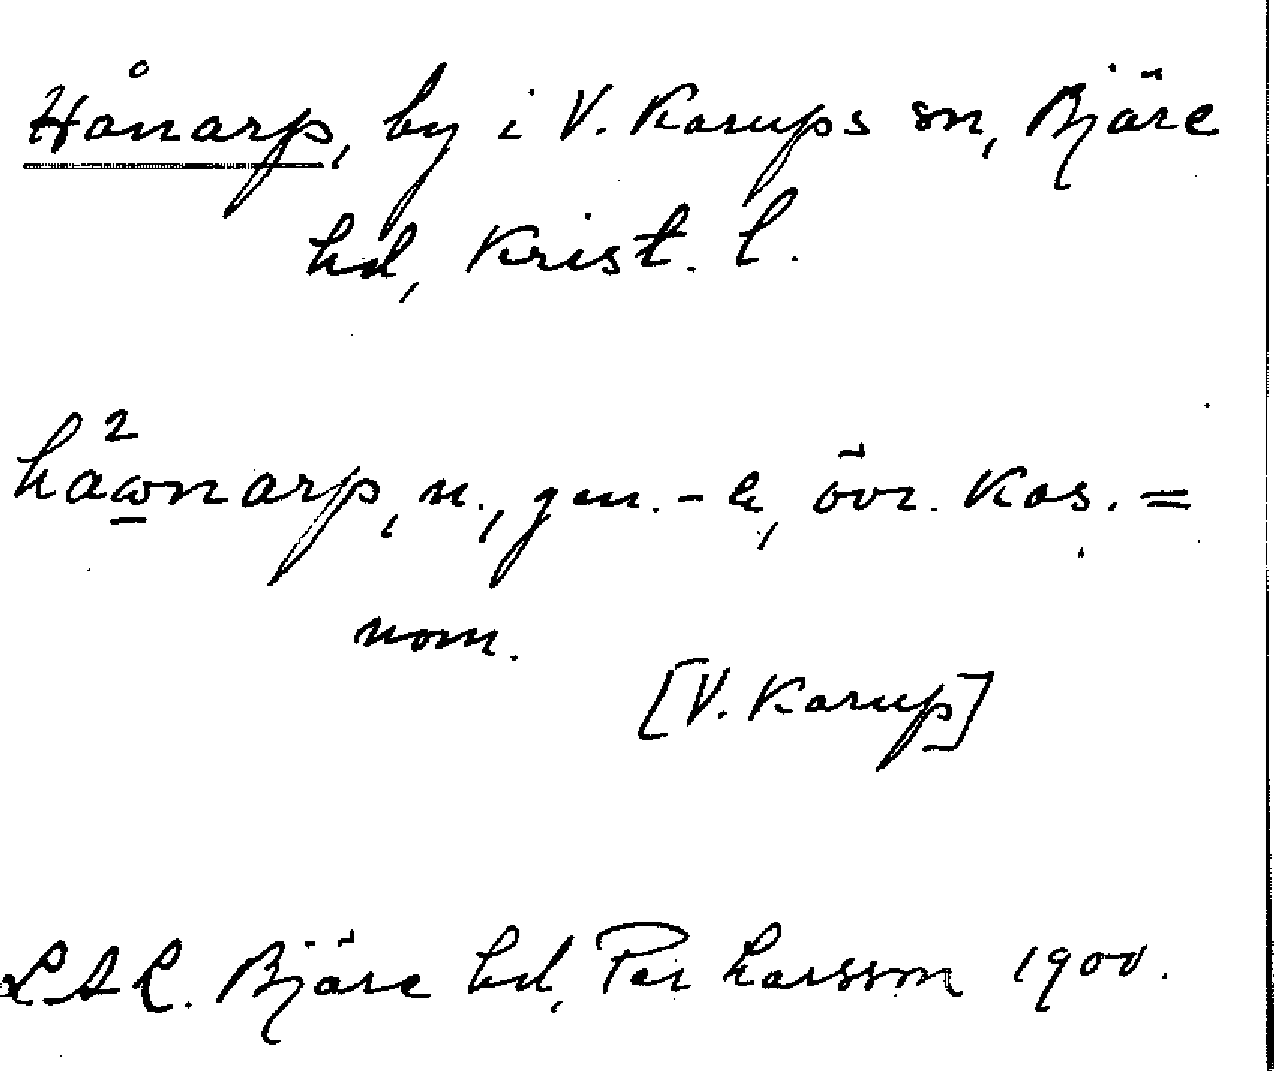 Hånarp, by i V. Karups sn, Bjäre
hd, Krist. l.
håω̲²narp, n., gen. -a, övr. kas. =
nom.
[V. Karup]
LAL. Bjäre hd, Per Larsson 1900.